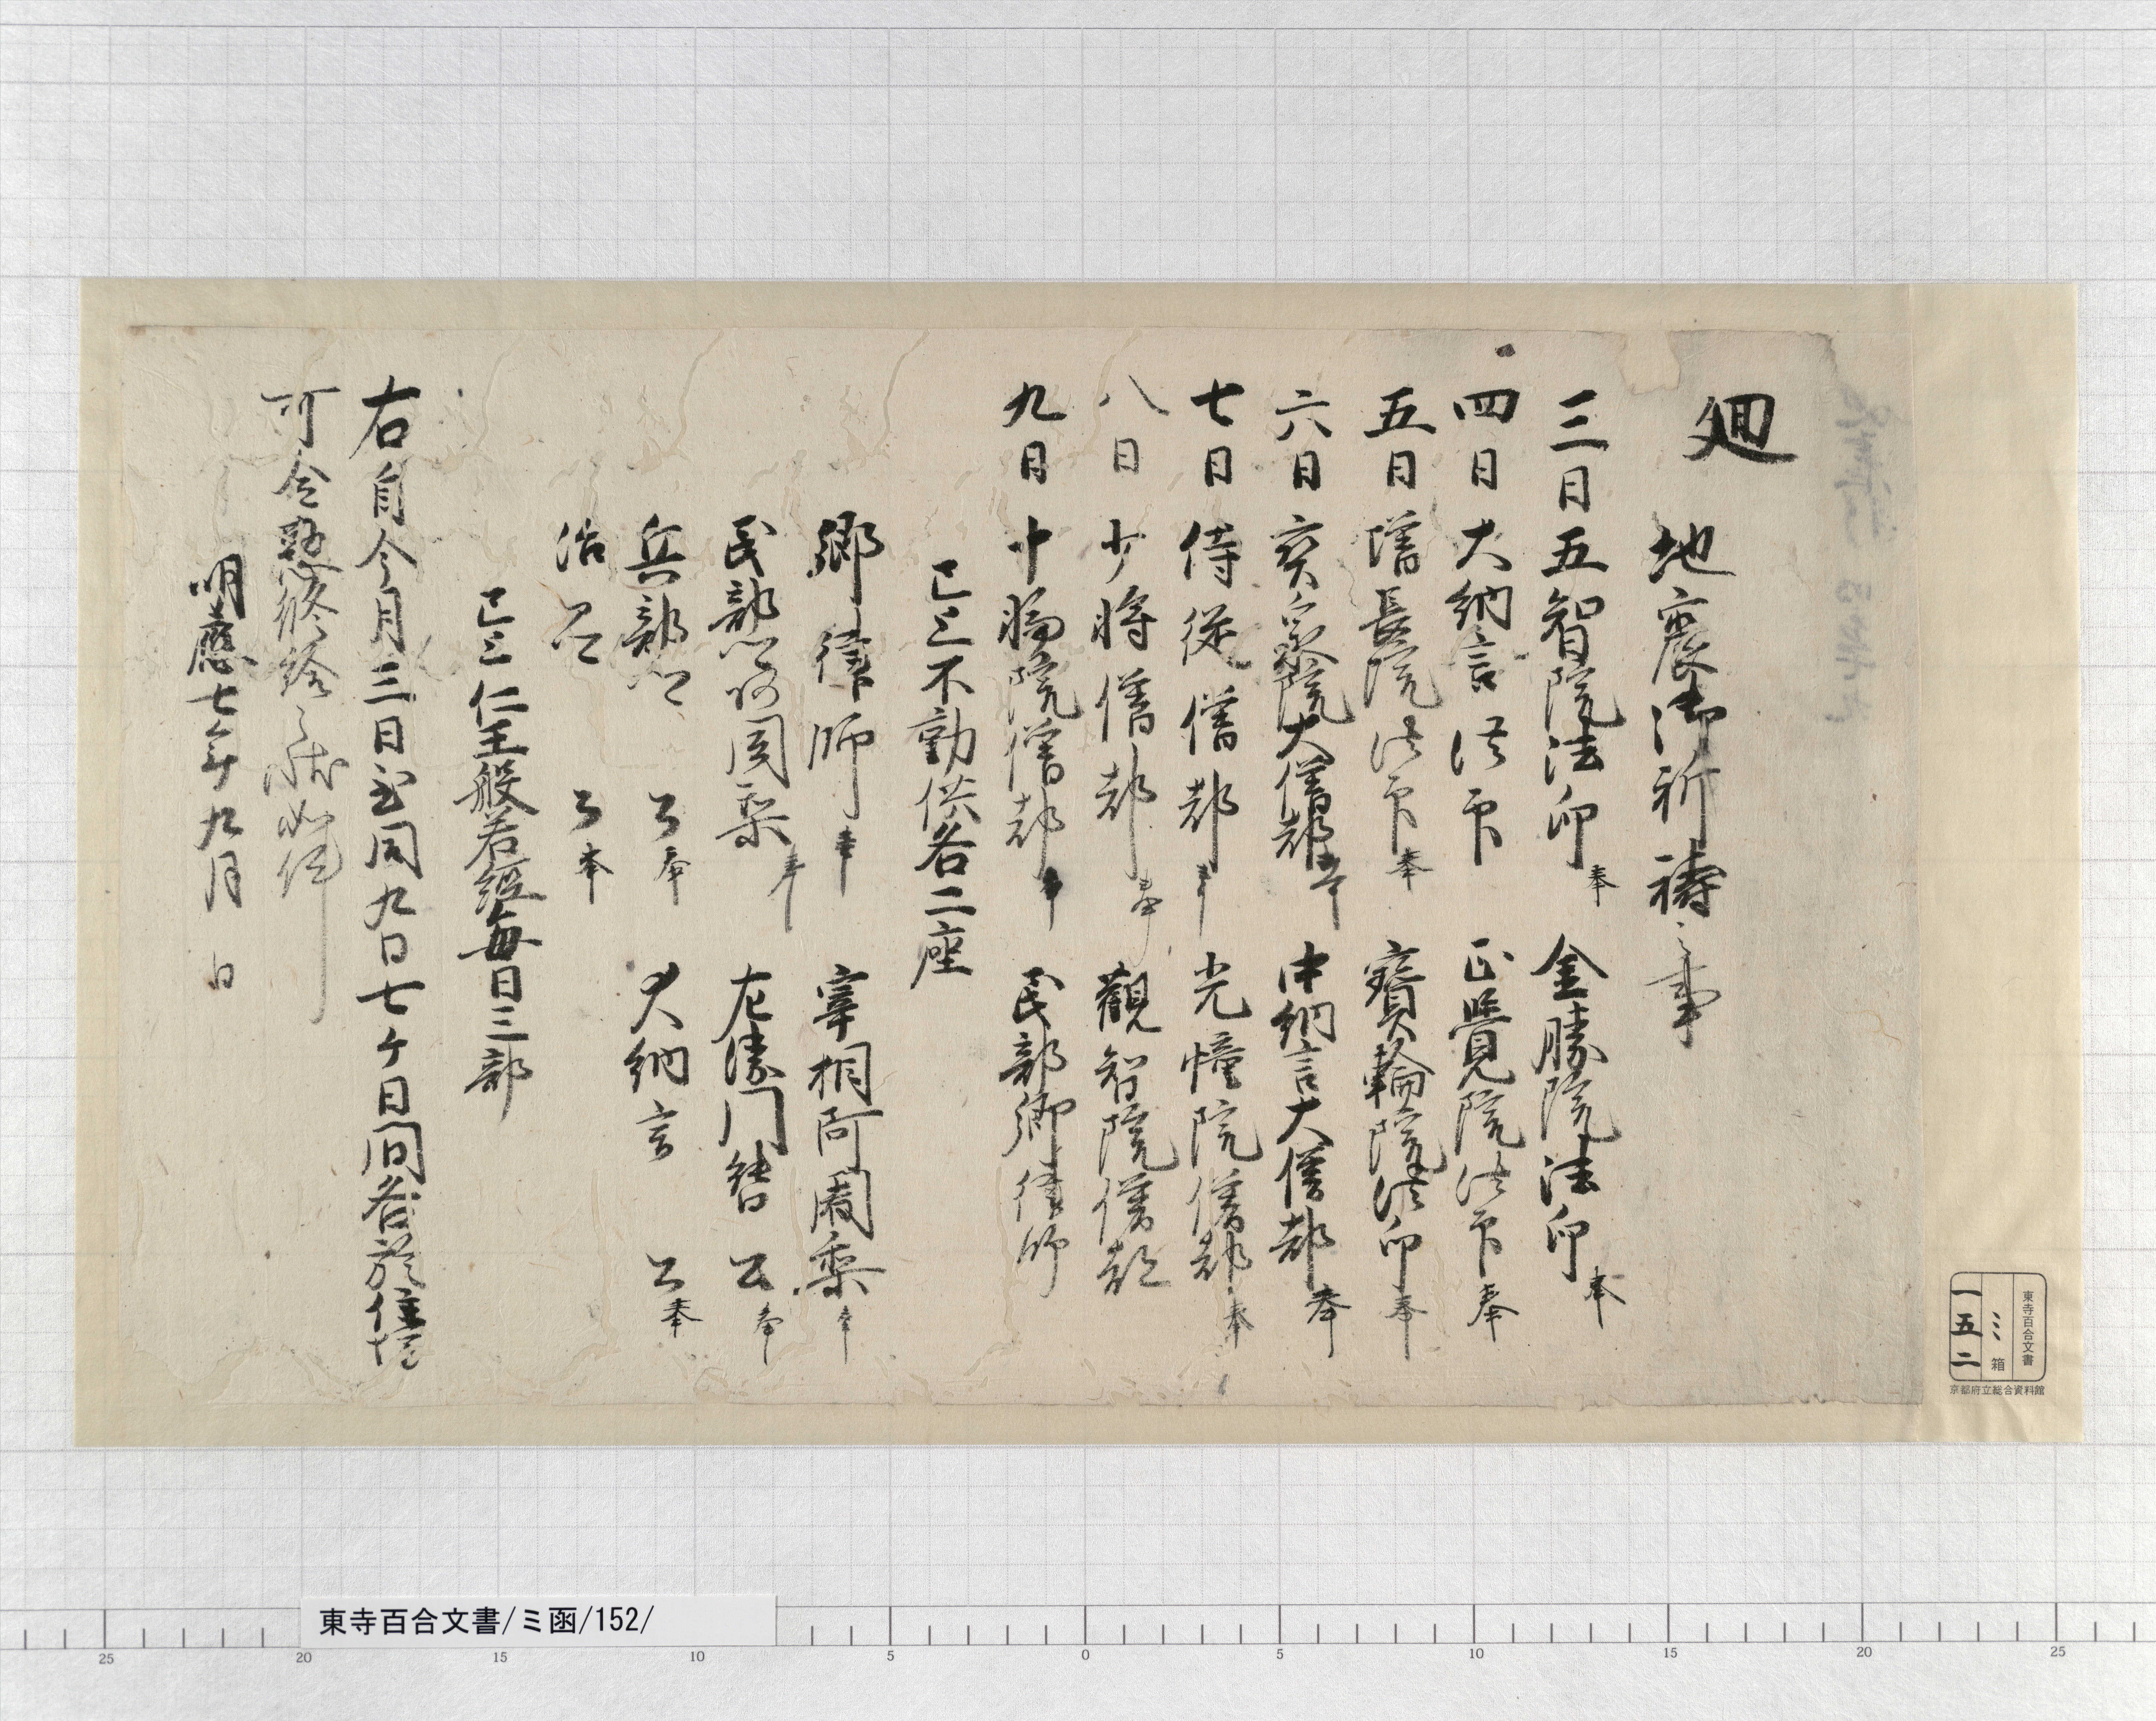 廻
地震御祈祷之事
三日 五智院法印 奉 金勝院法印 奉
四日 大納言法印 正覺院法印 奉
五日 増長院法印 奉 寶輪院法印 奉
六日 宝泉院大僧都 奉 中納言大僧都 奉
七日 侍従僧都 奉 光幢院僧都 奉
八日 少将僧都 奉 觀智院僧都
九日 十輪院僧都 奉 民部卿律師
已上不動供各二座
卿律師 奉 宰相阿闍梨 奉
民部卿阿闍梨 奉 左衛門督公 奉
兵部卿公 奉 大納言公 奉
治部卿公 奉
已上仁王般若經毎日三部
右自今月三日至同九日七ケ日間各於住坊
可令懃修給之状如件
明應七年九月 日
東寺百合文書
ミ箱
一五二
京都府立総合資料館
東寺百合文書/ミ函/152/
25 20 15 10 5 0 5 10 15 20 25